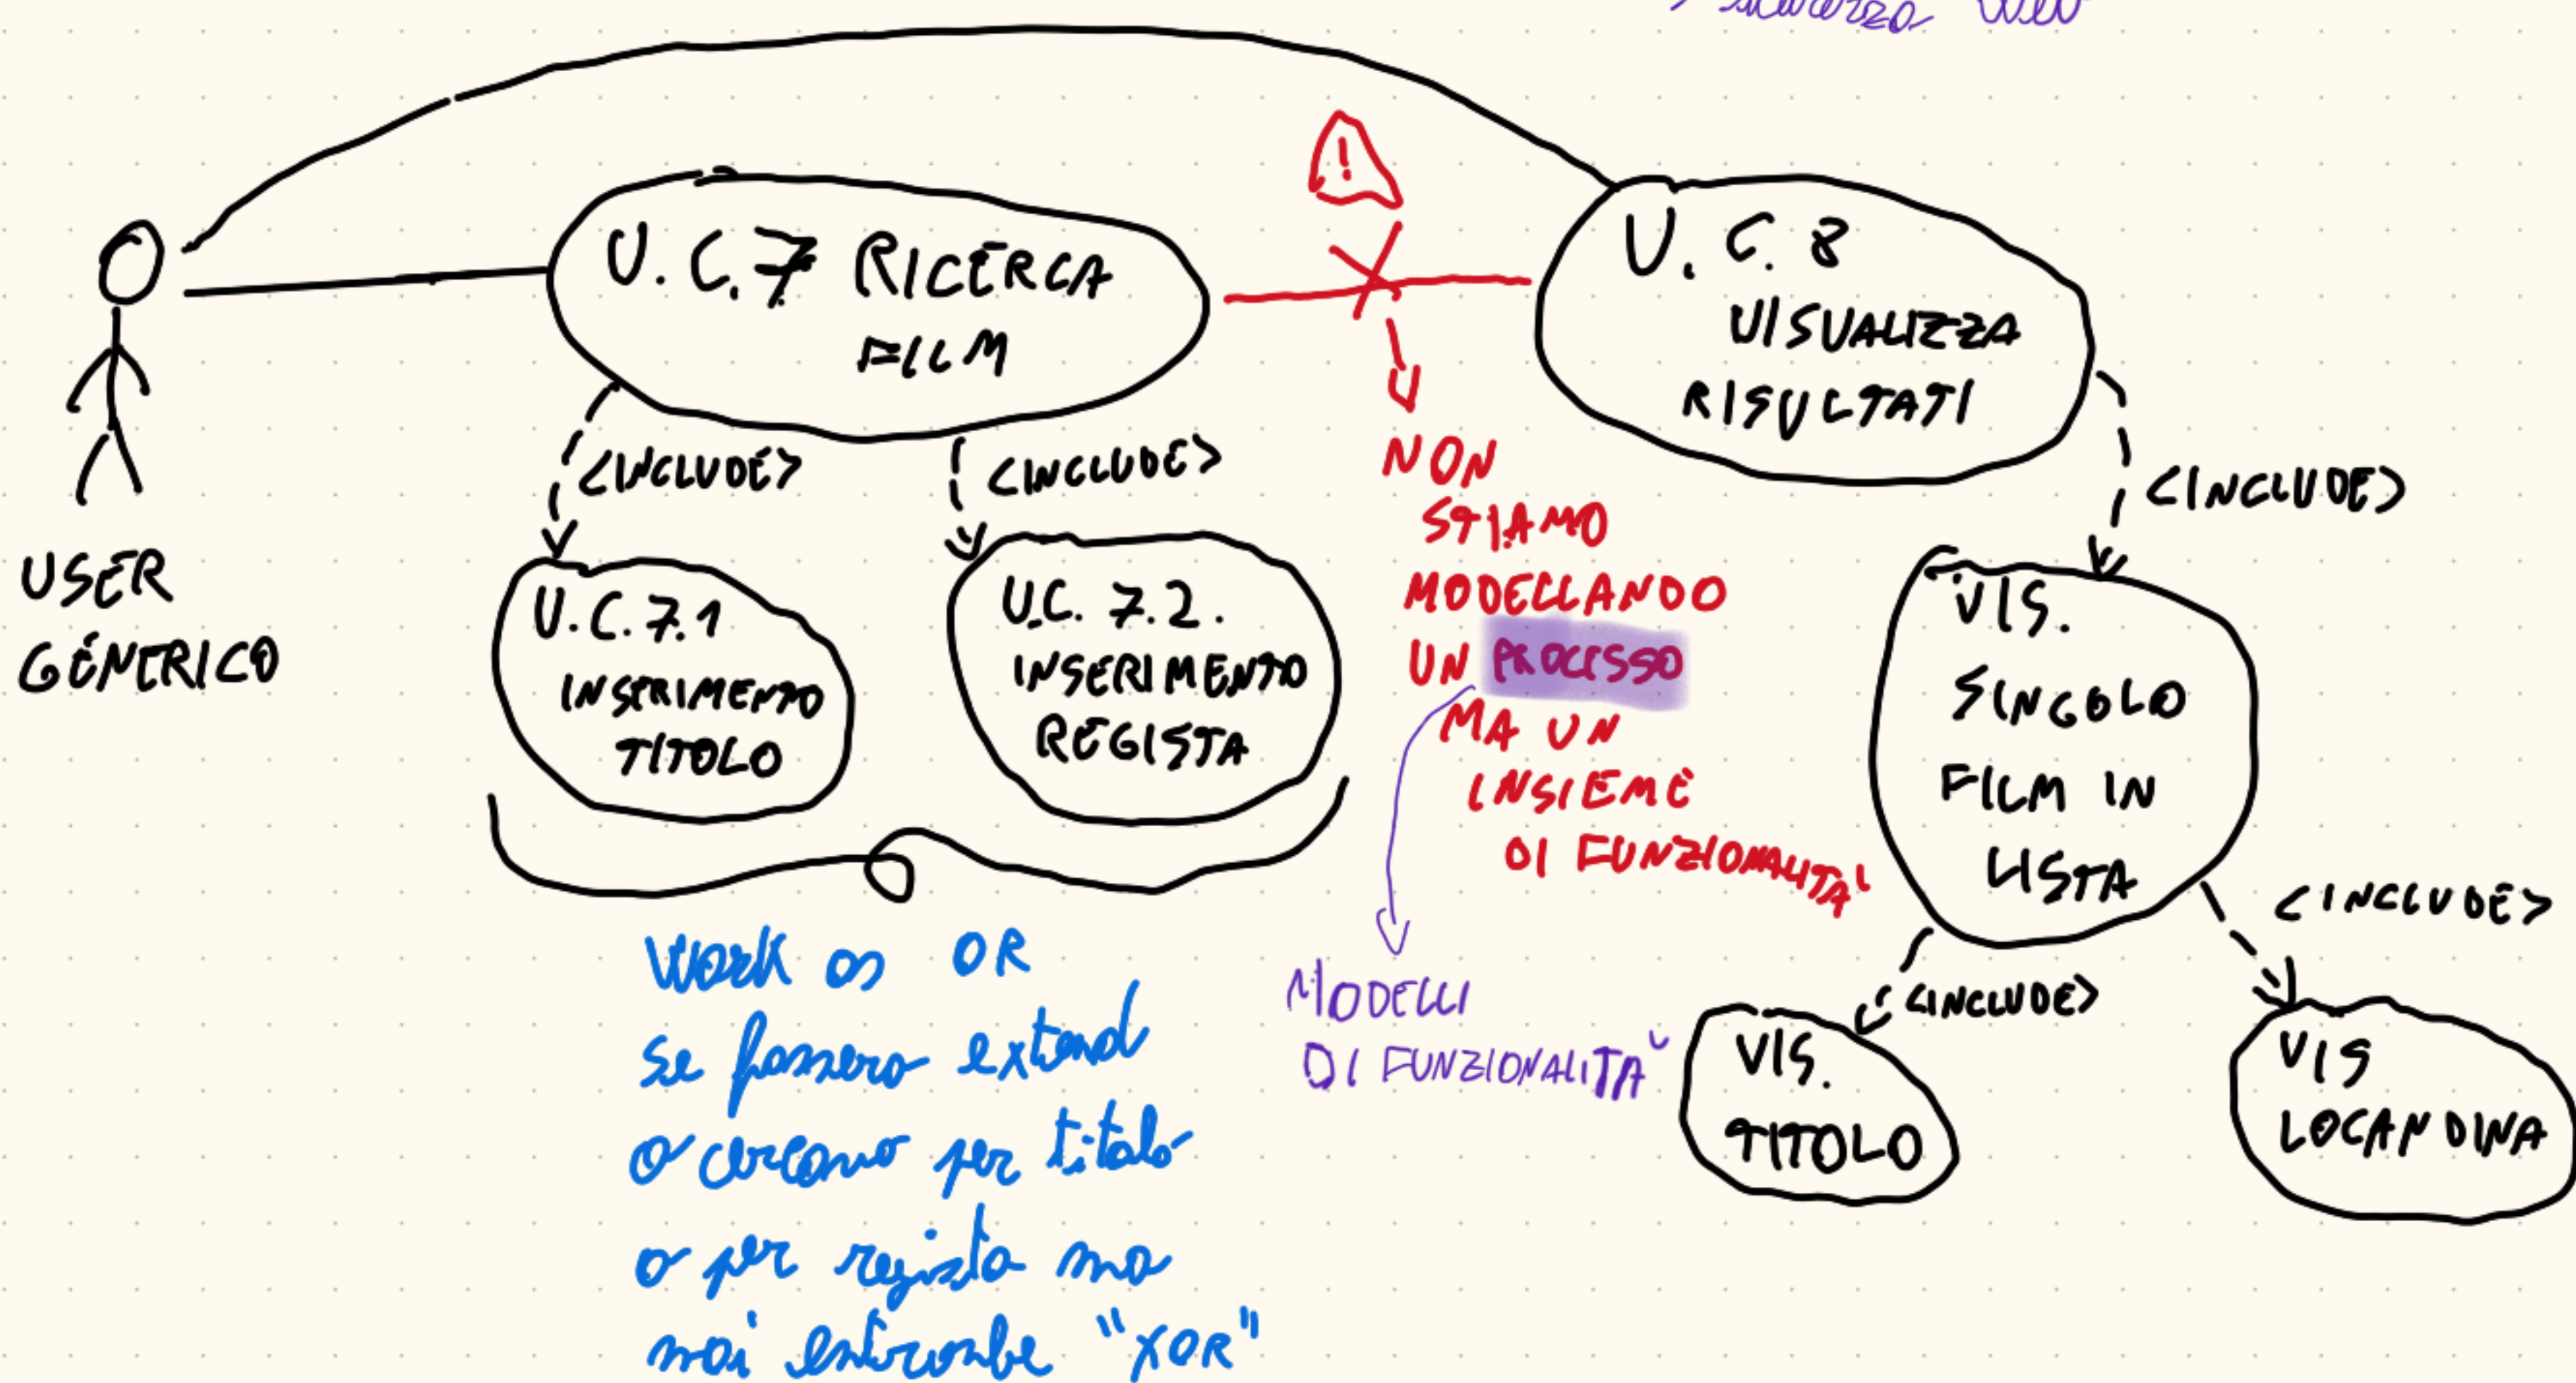 sicurezza Web
U.C.7 RICERCA
FILM
!
U. C. 8
VISUALIZZA
RISULTATI
<INCLUDE>
<INCLUDE>
<INCLUDE>
USER
GENERICO
U.C.7.1
INSERIMENTO
TITOLO
U.C. 7.2.
INSERIMENTO
REGISTA
NON
STIAMO
MODELLANDO
UN PROCESSO
MA UN
INSIEME
DI FUNZIONALITA'
VIS.
SINGOLO
FILM IN
LISTA
<INCLUDE>
<INCLUDE>
VIS.
TITOLO
VIS
LOCANDINA
MODELLI
DI FUNZIONALITA'
Work as OR
se fossero extend
o cercano per titolo
o per regista ma
mai entrambe "XOR"